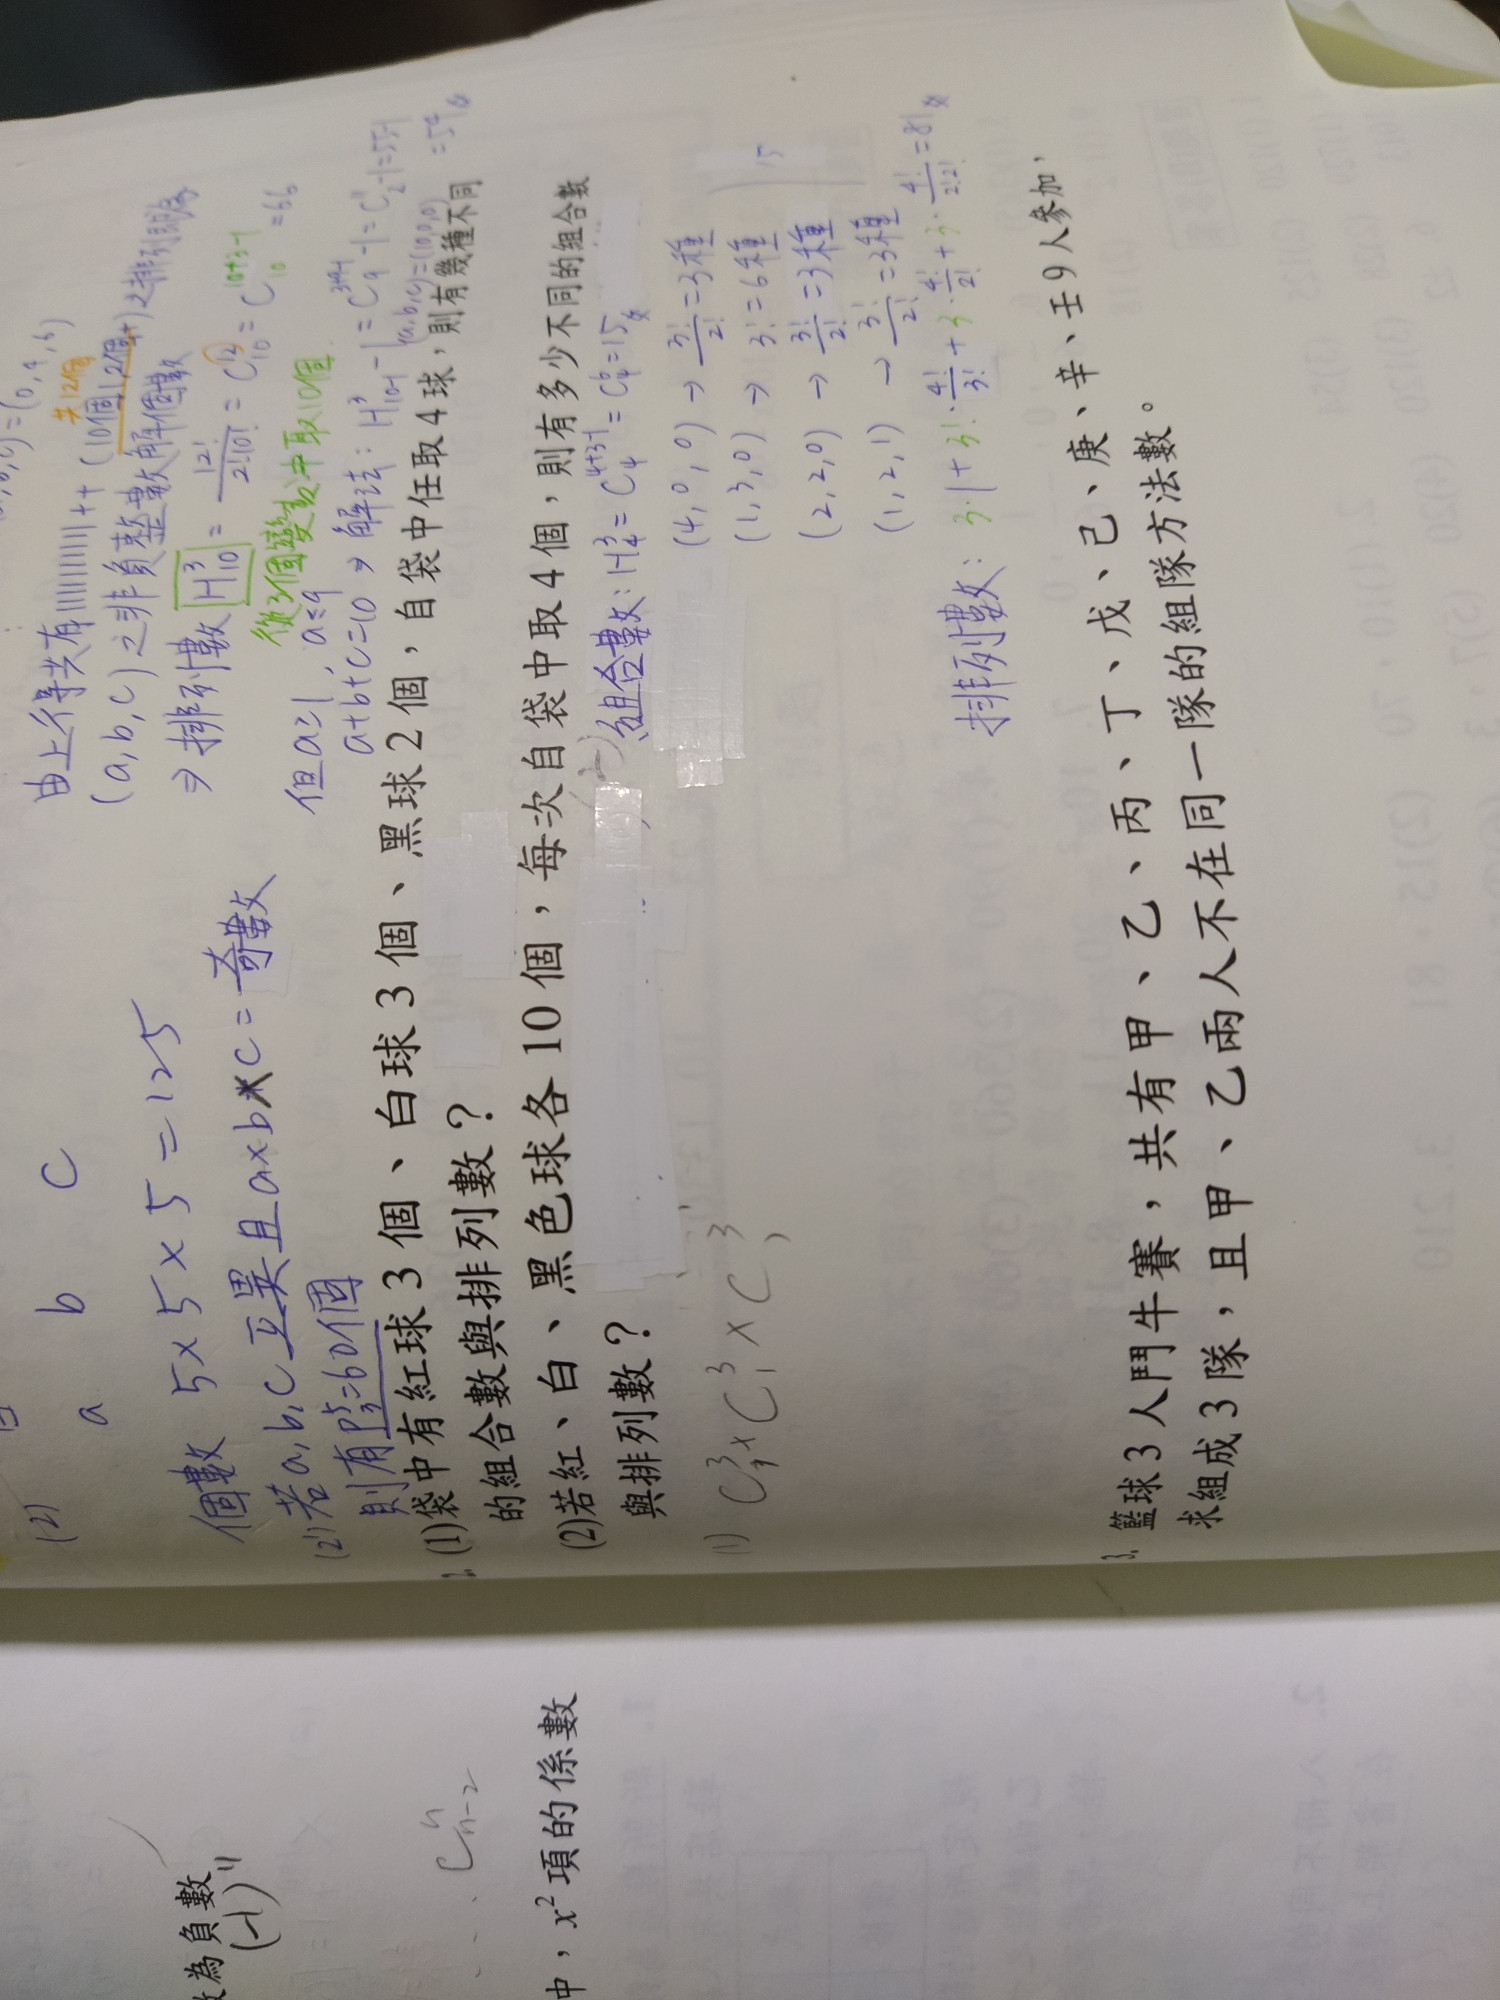 (2)
a b c
個數 5×5×5=125
(2') 若a,b,c互異且a×b×c=奇數
則有P⁵₃=60個
由上得共有||||||||||++(10個|,2個+)之排列即為
共12個
(a,b,c)之非負整數解個數
⇒排列數 H³₁₀ = 12!/2!10! = C¹²₁₀ = C¹⁰⁺³⁻¹₁₀ = 66
從3個變數中取10個
但a≥1,a≤9
a+b+c=10 ⇒ 解法:H³₁₀₋₁-1=C³⁺⁹⁻¹₉-1=C¹¹₂-1=55-1
(a,b,c)=(10,0,0) =54
2. (1)袋中有紅球3個、白球3個、黑球2個,自袋中任取4球,則有幾種不同
的組合數與排列數?
(2)若紅、白、黑色球各10個,每次自袋中取4個,則有多少不同的組合數
與排列數?
組合數:H³₄=C⁴⁺³⁻¹₄=C⁶₄=15
(4,0,0) → 3!/2!=3種
(1,3,0) → 3!=6種
(2,2,0) → 3!/2!=3種
(1,2,1) → 3!/2!=3種
15
排列數:3·1+3!·4!/3!+3·4!/2!+3·4!/2!2!=81
(1) C³₁×C³₁×C³₁
3. 籃球3人鬥牛賽,共有甲、乙、丙、丁、戊、己、庚、辛、壬9人參加,
求組成3隊,且甲、乙兩人不在同一隊的組隊方法數。
為負數
(-1)ⁿ
Cⁿₙ₋₂
中,x²項的係數